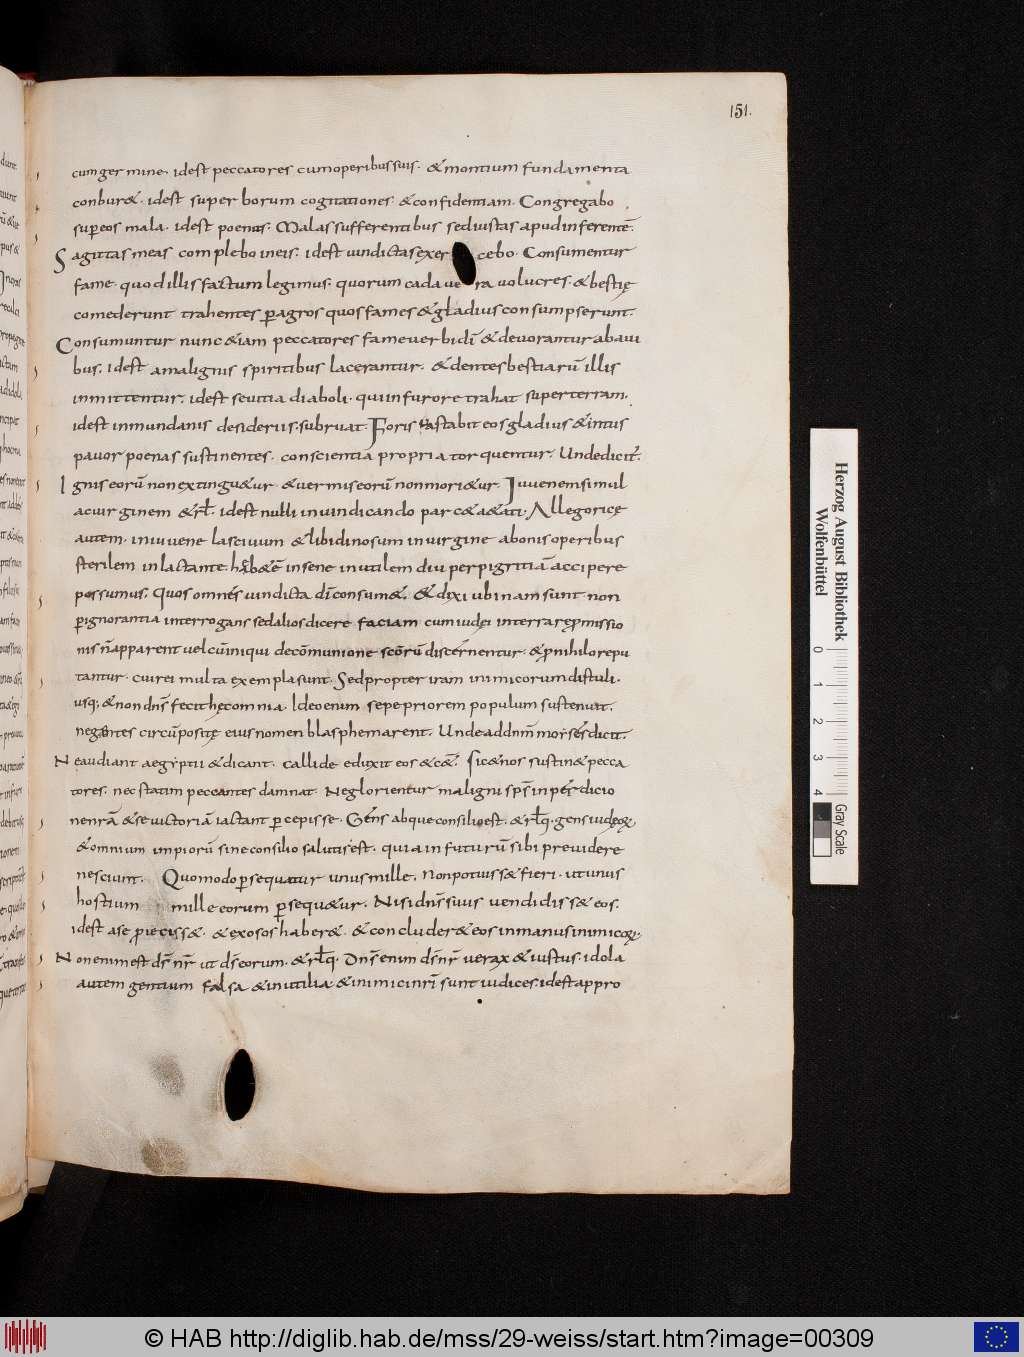 151.
cum germine. idest peccatores cum operibus suis. & montium fundamenta
conbur&. idest superborum cogitationes. & confidentiam. Congregabo
super eos mala. idest poenas. Malas sufferentibus sed iustas apud inferentē.
Sagittas meas complebo in eis. idest uindictas exercebo. Consumentur
fame. quod illis factum legimus. quorum cadauera uolucres. & bestię
comederunt trahentes p agros quos fames & gladius consumpserunt.
Consumuntur nunc &iam peccatores fame uerbi dī & deuorantur ab aui
bus. idest a malignis spiritibus lacerantur. & dentes bestiarū illis
inmittentur. idest seuitia diaboli. qui in furore trahat super terram.
idest in mundanis desideriis. subruat. Foris uastabit eos gladius & intus
pauor poenas sustinentes. conscientia propria torquentur. Unde dicit.
Ignis eorū non extingu&ur. & uermis eorū non mori&ur. Iuuenem simul
ac uirginem & rł. idest nulli in uindicando parc& a&ati. Allegoricę
autem. in iuuene lasciuum & libidinosum in uirgine a bonis operibus
sterilem in lactante. in sene inutilem diu per pigritiā accipere
possumus. Quos omnes uindicta dī consum&. & dixi ubinam sunt non
p ignorantia interrogans sed alios dicere faciam cum iudęi in terra repromissio
nis ñ apparent uel cū iniqui de cōmunione scōrū discernentur. & p nihilo repu
tantur. cui rei multa exempla sunt. Sed propter iram inimicorum distuli.
usq; & non dns̄ fecit hęc omnia. Ideo enim sepe priorem populum sustenuit.
ne gentes circū positę eius nomen blasphemarent. Unde ad dnm̄ moyses dicit.
Ne audiant aegyptii & dicant. callide eduxit eos & c&. Sic & nos sustin& pecca
tores. nec statim peccantes damnat. Ne glorientur maligni sps̄ in perdicio
ne nrā & se uictoriā iactant p cepisse. Gens absque consilio est. & rłq. gens iudęoꝝ
& omnium impiorū sine consilio salutis est. quia in futurū sibi preuidere
nesciunt. Quomodo p sequatur unus mille. Non potuiss& fieri. ut unus
hostium mille eorum p sequ&ur. Nisi dns̄ suus uendidiss& eos.
idest a se proieciss&. & exosos haber&. & concluder& eos in manus inimicoꝝ.
Non enim est ds̄ nr̄ ut ds̄ eorum. & rłq. Dns̄ enim ds̄ nr̄ uerax & iustus. idola
autem gentium falsa & inutilia. & inimici nrī sunt iudices. idest appro
Herzog August Bibliothek
Wolfenbüttel
0 1 2 3 4
Gray Scale
© HAB http://diglib.hab.de/mss/29-weiss/start.htm?image=00309